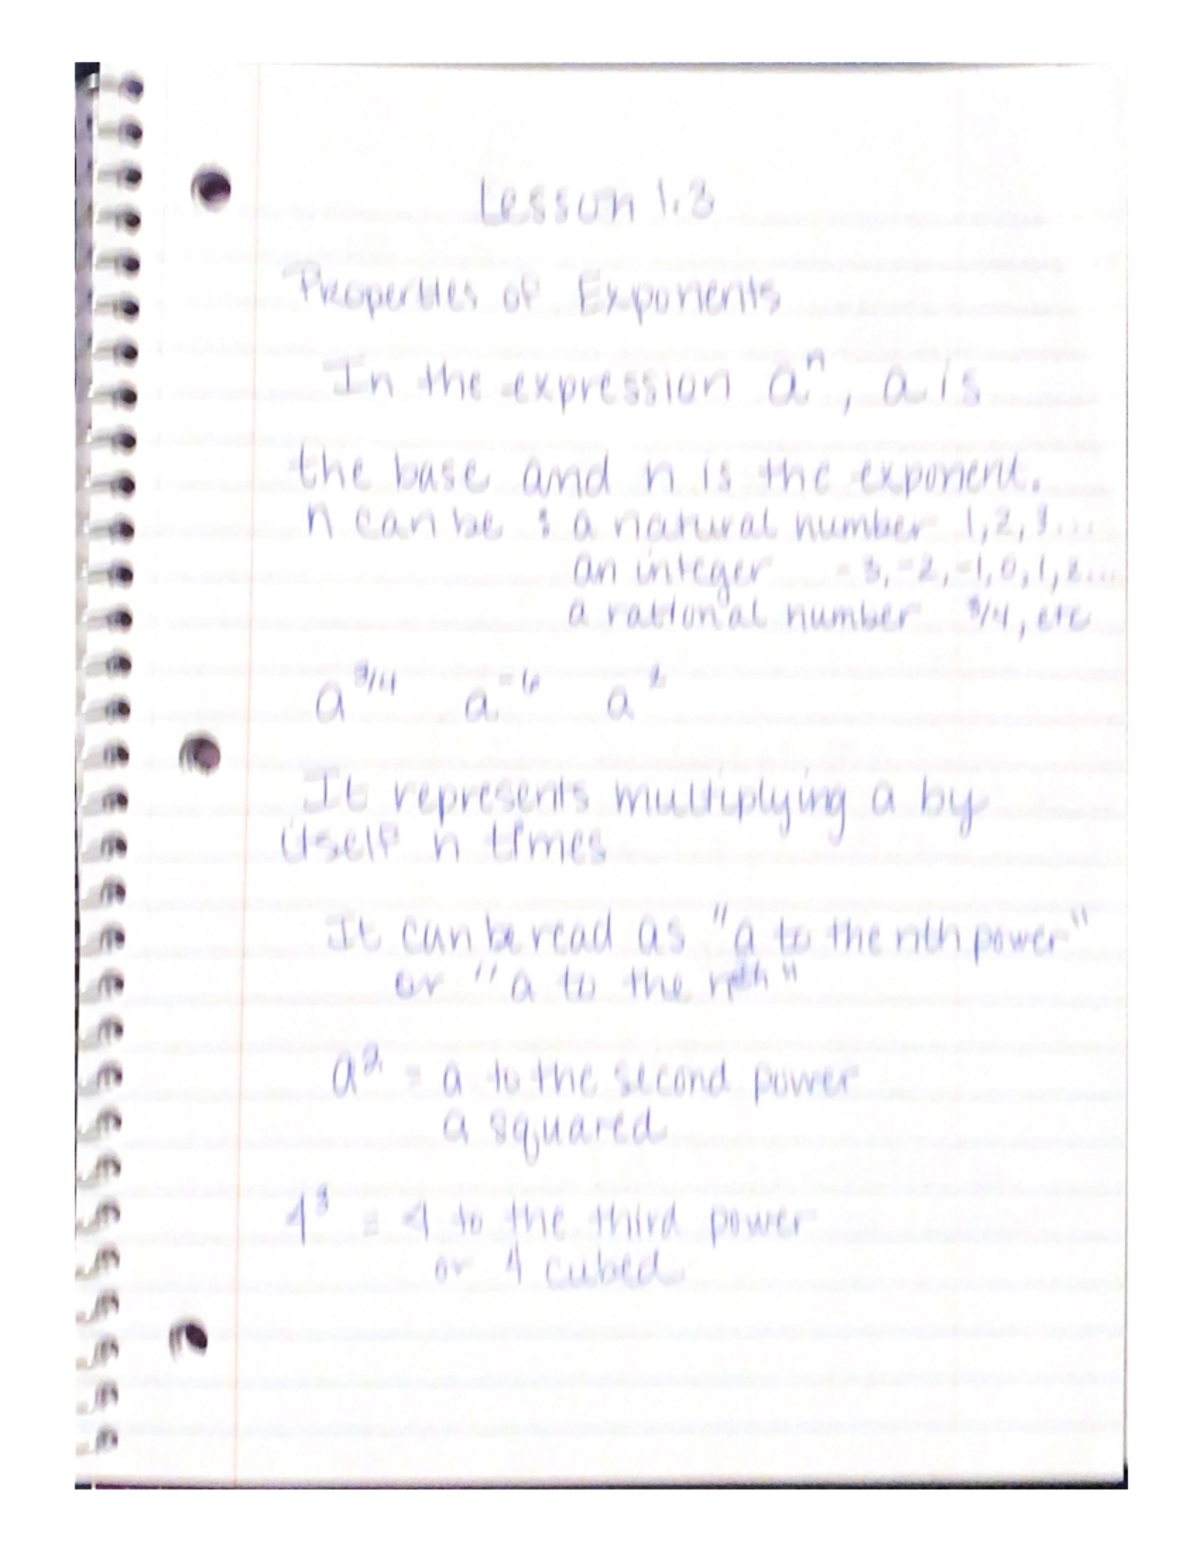 Lesson 1.3
Properties of Exponents
In the expression aⁿ, a is
the base and n is the exponent.
n can be : a natural number 1,2,3...
an integer -3,-2,-1,0,1,2...
a rational number 3/4, etc
a^3/4 a^-6 a^2
It represents multiplying a by
itself n times
It can be read as "a to the nth power"
or "a to the nth"
a² = a to the second power
a squared
4³ = 4 to the third power
or 4 cubed